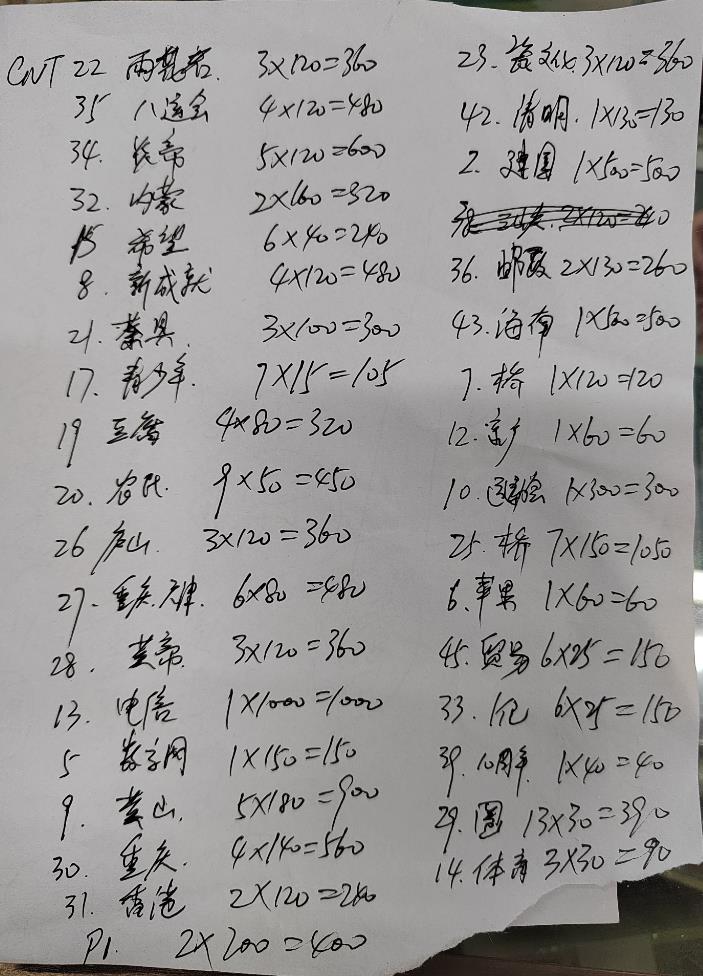 CNT 22 两 3×120=360
35 八运会 4×120=480
34. 5×120=600
32. 内蒙 2×160=320
15 希望 6×40=240
8. 新成就 4×120=480
21. 茶具 3×100=300
17. 青少年. 7×15=105
19 豆腐 4×80=320
20. 农民 9×50=450
26 庐山 3×120=360
27. 重庆.天津. 6×80=480
28. 黄帝 3×120=360
13. 电信 1×1000=1000
5 数字网 1×150=150
9. 黄山. 5×180=900
30. 重庆. 4×140=560
31. 香港 2×120=240
P1. 2×200=400
23. 瓷文化 3×120=360
42. 清明. 1×130=130
2. 建国 1×500=500
36. 邮政 2×130=260
43. 海南 1×500=500
7. 桥 1×120=120
12. 1×60=60
10. 运动会 1×300=300
25. 桥 7×150=1050
6. 苹果 1×60=60
45. 贸易 6×25=150
33. 6×25=150
39. 10周年. 1×40=40
29. 圆 13×30=390
14. 体育 3×30=90